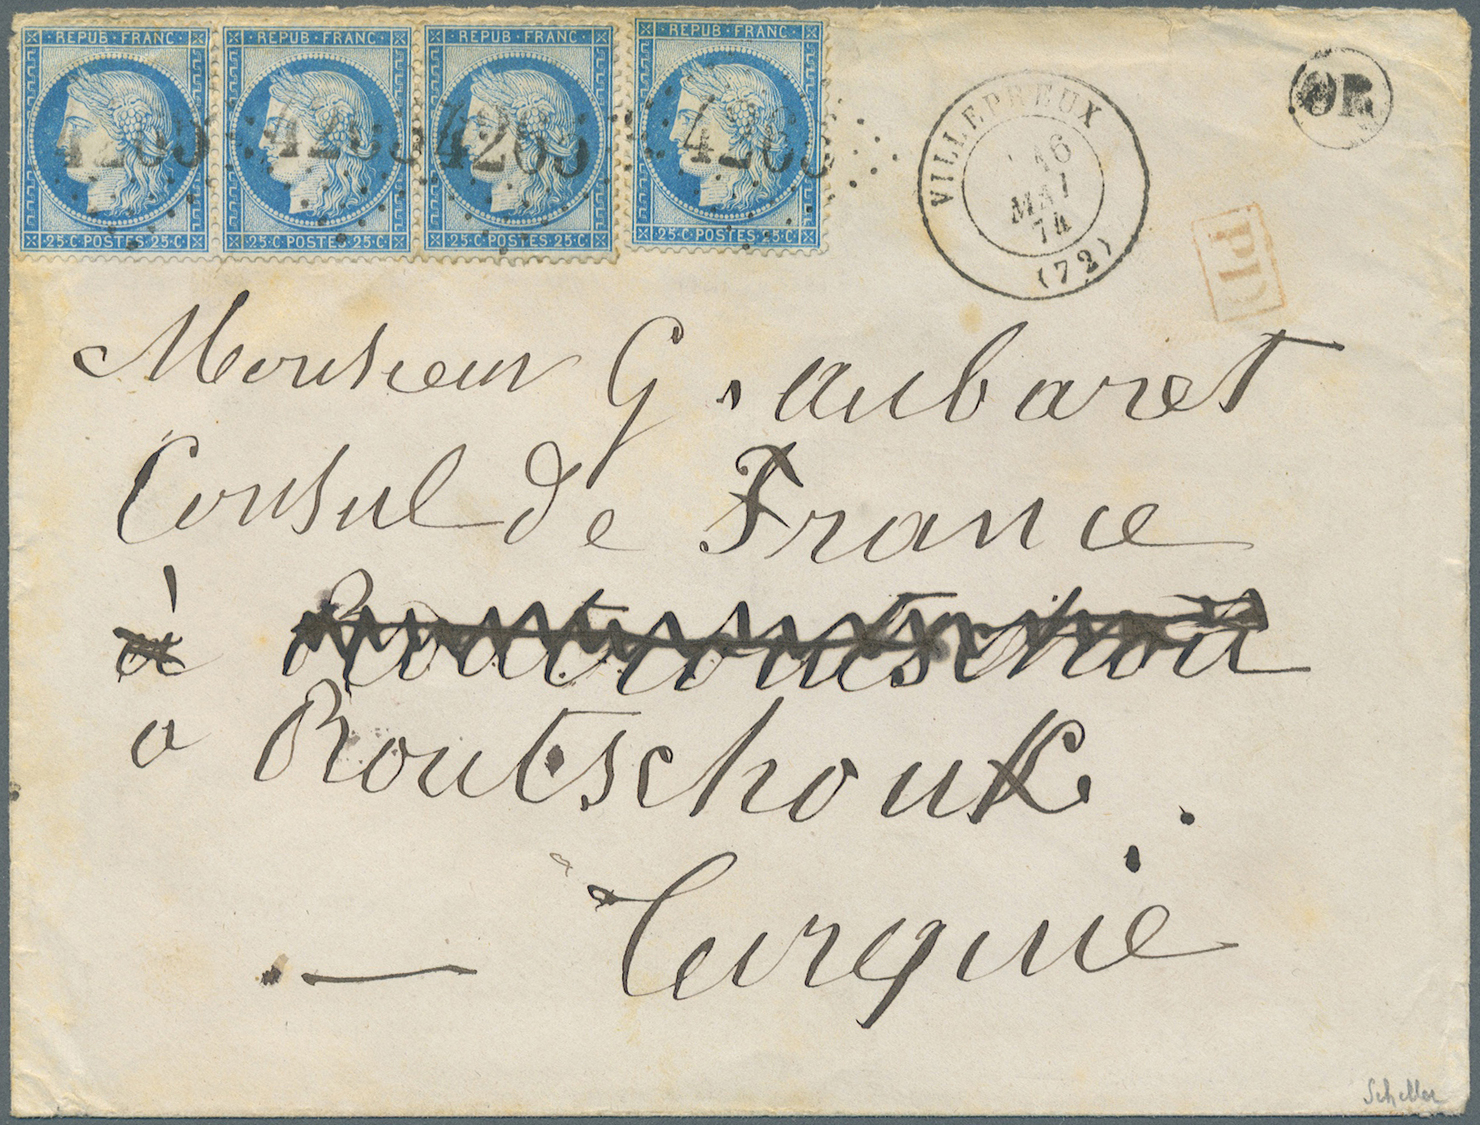 REPUB·FRANC REPUB·FRANC REPUB·FRANC REPUB·FRANC
4265 4265 4265 4265
25·C·POSTES·25·C· 25·C·POSTES·25·C· 25·C·POSTES·25·C· 25·C·POSTES·25·C·
VILLEPREUX
16
MAI
74
(72)
OR
PD
Monsieur G. Aubaret
Consul de France
à
a Routschouk.
Turquie
Scheller